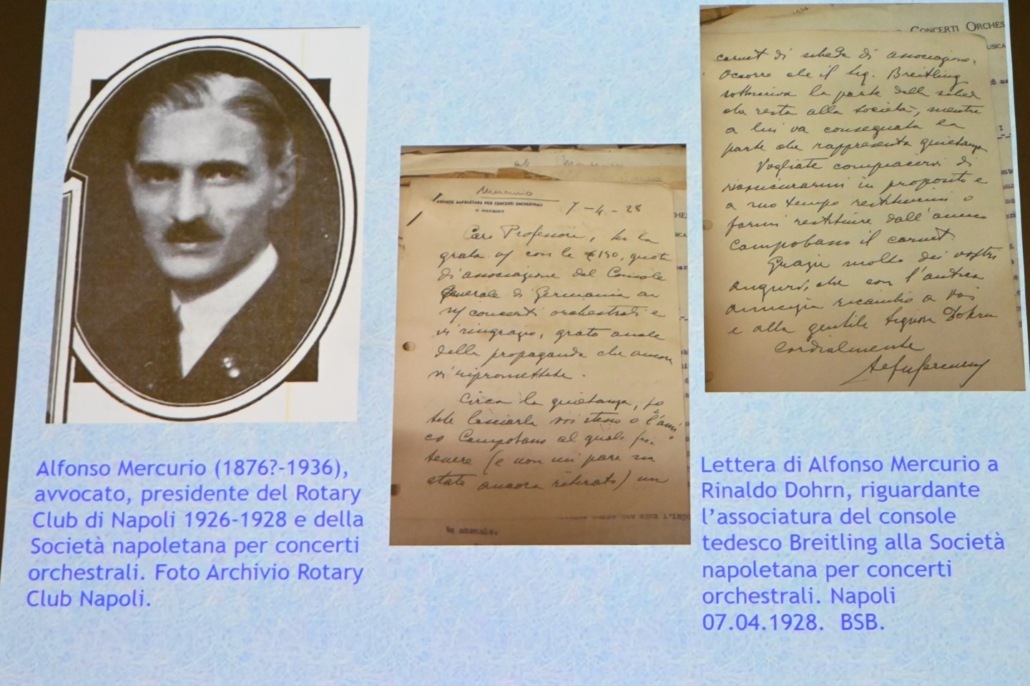 Alfonso Mercurio (1876?-1936),
avvocato, presidente del Rotary
Club di Napoli 1926-1928 e della
Società napoletana per concerti
orchestrali. Foto Archivio Rotary
Club Napoli.
Mercurio
SOCIETÀ NAPOLETANA PER CONCERTI ORCHESTRALI
7-4-28
Caro Professore, ho la
grata con le £150, quota
di associazione del Console
Generale di Germania ai
concerti orchestrali e
vi ringrazio, grato anche
della propaganda che ancora
vi ripromettete.
Circa la quietanza, po
tete lasciarla voi stesso o l'ami
co Campobasso al quale
tenere (e non mi pare sia
stato ancora ritirato) un
CONCERTI ORCHES
carnet di scheda di associazione.
Occorre che il Sig. Breitling
sottoscriva la parte della scheda
che resta alla società, mentre
a lui va consegnata la
parte che rappresenta quietanza.
Vogliate compiacervi di
rassicurarmi in proposito e
a suo tempo restituirmi o
farmi restituire dall'amico
Campobasso il carnet.
Grazie molto dei vostri
auguri, che con l'antica
amicizia ricambio a Voi
e alla gentile Signora Dohrn
cordialmente
Lettera di Alfonso Mercurio a
Rinaldo Dohrn, riguardante
l'associatura del console
tedesco Breitling alla Società
napoletana per concerti
orchestrali. Napoli
07.04.1928. BSB.